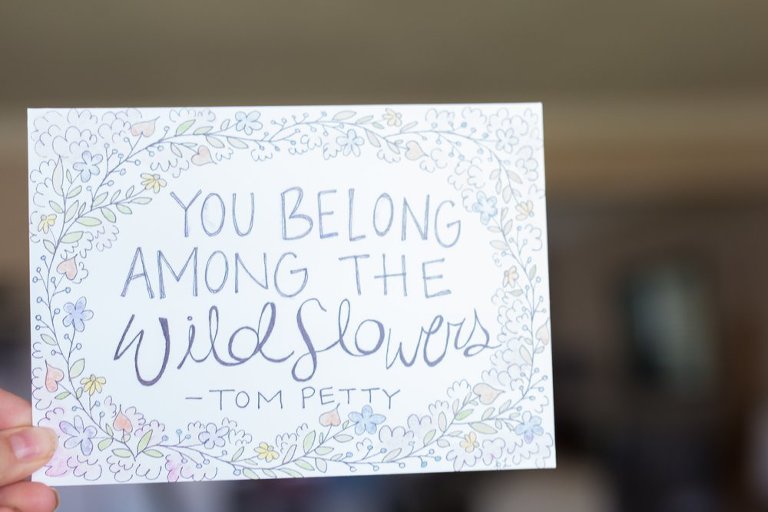 YOU BELONG
AMONG THE
Wildflowers
-TOM PETTY